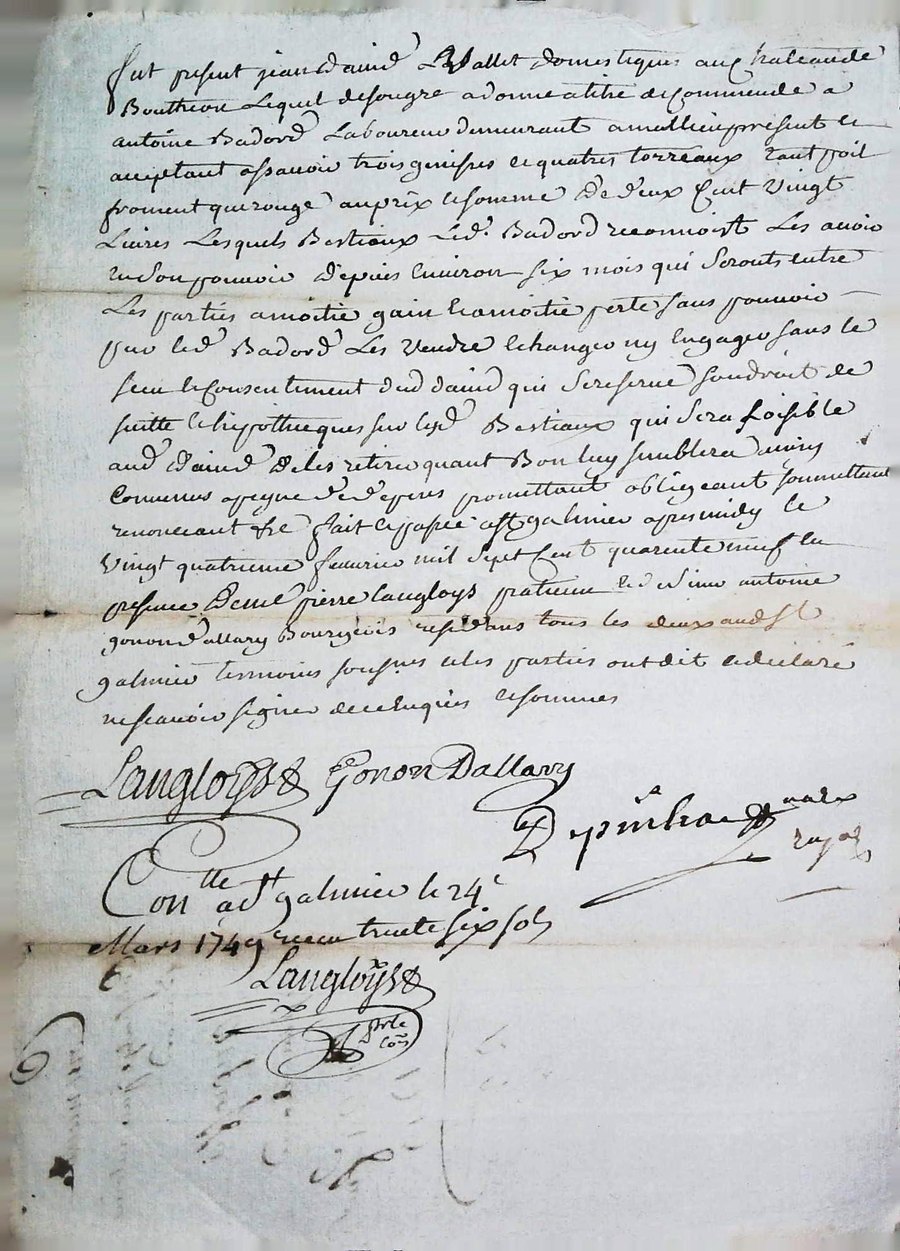 fut present jean david Vallet domestiques au chateau de
Boutheon Lequel de son gre a donne a titre de commende a
antoine Badord Laboureur demeurant a present et
acceptant assavoir trois genisses et quatres torreaux tant poil
froment que rouge au prix et somme de deux Cent Vingt
Livres Lesquels Bestiaux Led. Badord reconnoist Les avoir
en son pouvoir depuis Environ six mois qui seronts entre
Les parties a moitié gain et a moitie perte sans pouvoir
par led Badord Les Vendre Echanger ny Engager sans le
sceu et Consentiment dud david qui se reserve son droit de
suitte et hipotheques sur lesd Bestiaux qui sera Loisible
aud david de les retirer quant Bon luy semblera ainsy
Convenus a peyne de depens promettant obligeant soumettant
renonceant &c fait et passé a st galmier apres midy le
Vingt quatrieme fevrier mil sept Cent quarente neuf en
presence de me pierre Langloys praticien et de sieur antoine
gonon dallary Bourgeois residans tous les deux aud st
galmier temoins soussignes et les parties ont dit et declaré
ne scavoir signer de ce Enquies et sommes
Langloys Gonon Dallary

Con lle a st galmier le 24e
Mars 1749 receu trente six sols
Langloys